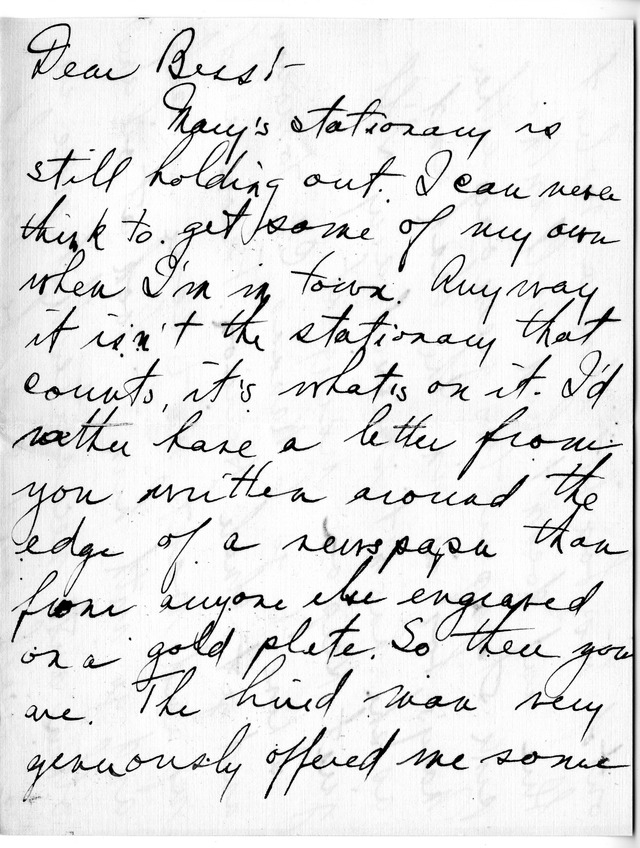 Dear Bess:-
Mary's stationary is
still holding out. I can never
think to get some of my own
when I'm in town. Anyway
it isn't the stationary that
counts, it's what's on it. I'd
rather have a letter from
you written around the
edge of a newspaper than
from anyone else engraved
on a gold plate. So there you
are. The hired man very
generously offered me some